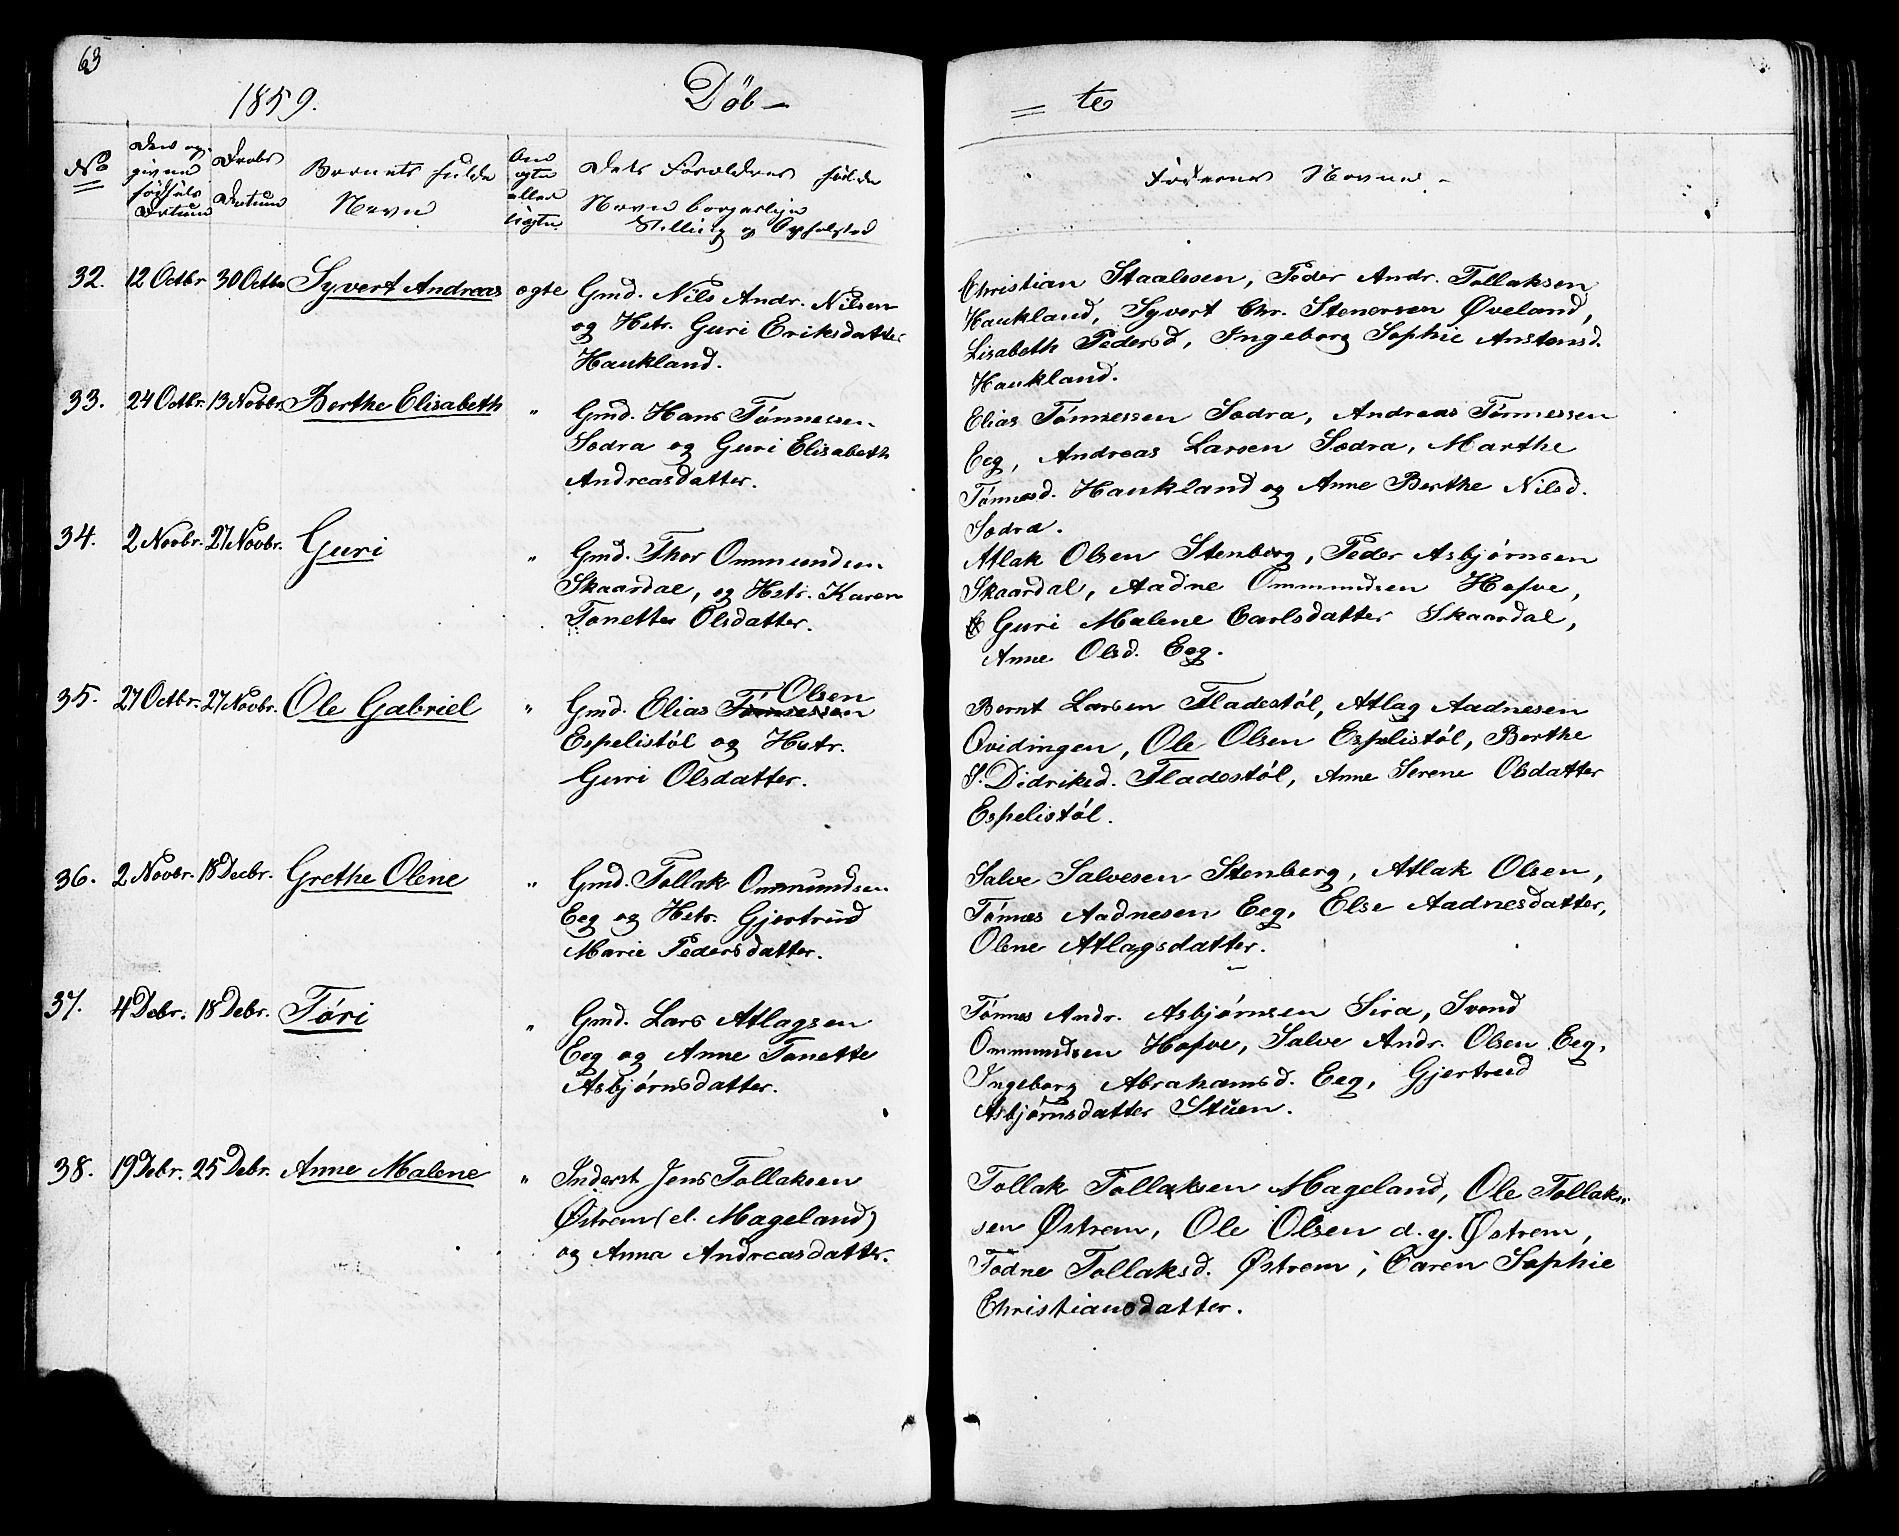 63
1859.
Døb-
= te
No
Den op-
givne
Fødsels
Datum
Daabs
Datum
Barnets fulde
Navn
Om
ægte
eller
uægte
Dets Forældres fulde
Navn borgerlige
Stilling og Opholdsted
Faddernes Navne -
32. 12 Octbr 30 Octbr Syvert Andreas ægte
Gmd. Nils Andr. Nilsen
og Hstr. Guri Eriksdatter
Haukland.
Christian Staalesen, Peder Andr. Tollaksen
Haukland, Syvert Chr. Stenersen Øveland,
Lisabeth Pedersd, Ingeborg Sophie Anstensd.
Haukland.
33. 24 Octbr. 13 Novbr. Berthe Elisabeth "
Gmd. Hans Tønnessen
Sodra og Guri Elisabeth
Andreasdatter.
Elias Tønnessen Sodra, Andreas Tønnessen
Eeg, Andreas Larsen Sodra, Marthe
Tønnesd. Haukland og Anne Berthe Nilsd.
Sodra.
34. 2 Novbr. 27 Novbr. Guri "
Gmd. Thor Ommundsen
Skaardal, og Hstr. Karen
Tonette Olsdatter.
Atlak Olsen Stenberg, Peder Asbjørnsen
Skaardal, Aadne Ommundsen Hofve,
Guri Malene Carlsdatter Skaardal,
Anne Olsd. Eeg.
35. 27 Octbr. 27 Novbr. Ole Gabriel "
Olsen
Gmd. Elias Tønnessen
Espelistøl og Hstr.
Guri Olsdatter.
Bernt Larsen Fladestøl, Atlag Aadnesen
Qvidingen, Ole Olsen Espelistøl, Berthe
S. Didriksd. Fladestøl, Anne Serene Olsdatter
Espelistøl.
36. 2 Novbr. 18 Decbr. Grethe Olene "
Gmd. Tollak Ommundsen
Eeg og Hstr. Gjertrud
Marie Pedersdatter.
Salve Salvesen Stenberg, Atlak Olsen,
Tønnes Aadnesen Eeg, Else Aadnesdatter,
Olene Atlagsdatter.
37. 4 Debr. 18 Debr. Tøri "
Gmd. Lars Atlagsen
Eeg og Anne Tonette
Asbjørnsdatter.
Tønnes Andr. Asbjørnsen Sira, Svend
Ommundsen Hofve, Salve Andr. Olsen Eeg,
Ingeborg Abrahamsd. Eeg, Gjertrud
Asbjørnsdatter Stuen.
38. 19 Debr. 25 Debr. Anne Malene "
Inderst Jens Tollaksen
Østrem (el. Mageland)
og Anna Andreasdatter.
Tollak Tollaksen Mageland, Ole Tollak-
sen Østrem, Ole Olsen d. y. Østrem,
Todne Tollaksd. Østrem, Caren Sophie
Christiansdatter.